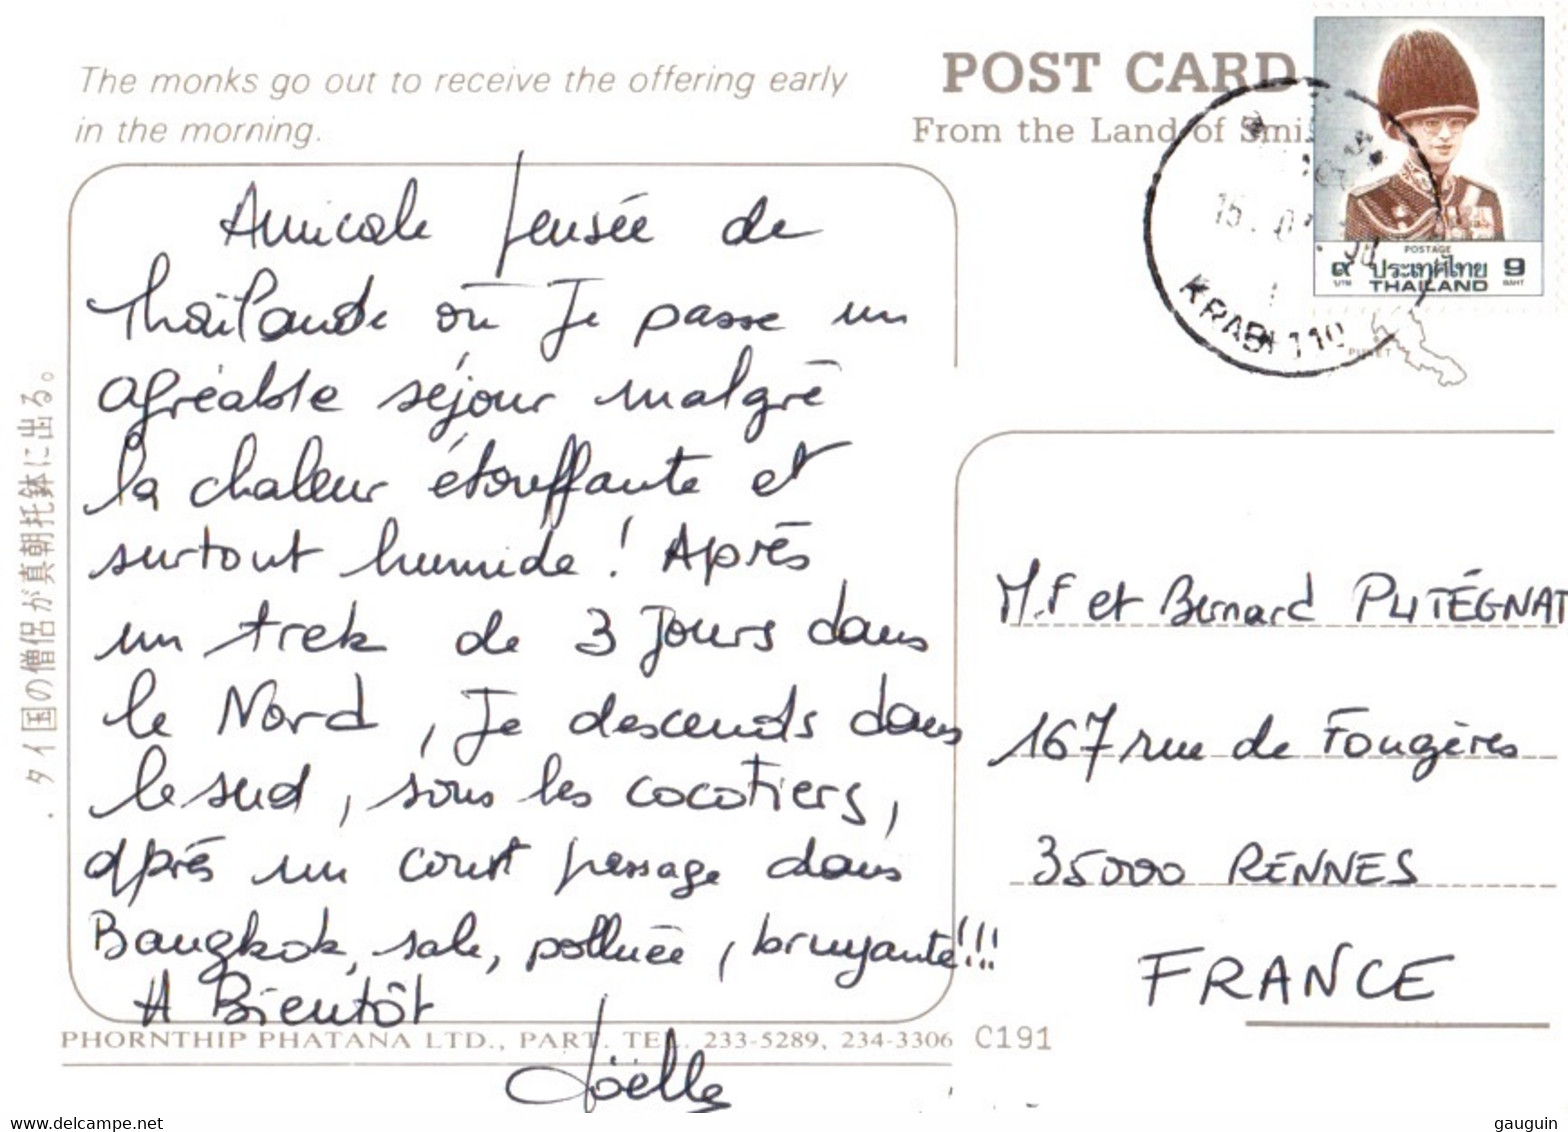 The monks go out to receive the offering early
in the morning.
POST CARD
From the Land of Smi
Amicale pensée de
Thaïlande où je passe un
agréable séjour malgré
la chaleur étouffante et
surtout humide ! Après
un trek de 3 jours dans
le Nord, je descends dans
le sud, sous les cocotiers,
après un court passage dans
Bangkok, sale, polluée, bruyante !!!
A Bientôt
Joëlle
PHORNTHIP PHATANA LTD., PART. TEL. 233-5289, 234-3306 C191
タイ国の僧侶が真朝托鉢に出る。
POSTAGE
๙ ประเทศไทย 9
บาท THAILAND BAHT
KRABI 110
PUKET
M.F et Bernard PUTÉGNAT
167 rue de Fougères
35000 RENNES
FRANCE
delcampe.net
gauguin